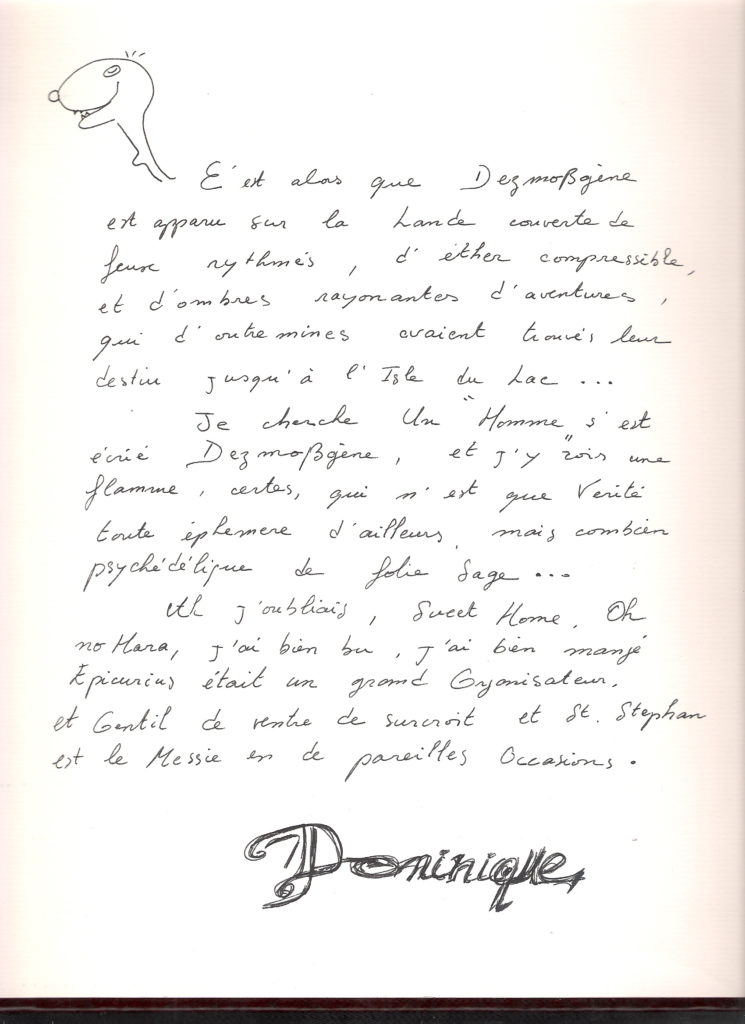 C'est alors que Dezmoßgène
est apparu sur la Lande couverte de
feux rythmés, d'éther compressible,
et d'ombres rayonantes d'aventures,
qui d'outremines avaient trouvés leur
destin jusqu'à l'Isle du Lac ...
Je cherche Un "Homme" s'est
écrié Dezmoßgène, et j'y vois une
flamme, certes, qui n'est que Verité
toute éphemere d'ailleurs, mais combien
psychédélique de folie Sage ...
Ah j'oubliais, Sweet Home, Oh
no Hara, j'ai bien bu, j'ai bien mangé
Epicurius était un grand Organisateur,
et Gentil de ventre de surcroit et St. Stephan
est le Messie en de pareilles Occasions.
Dominique